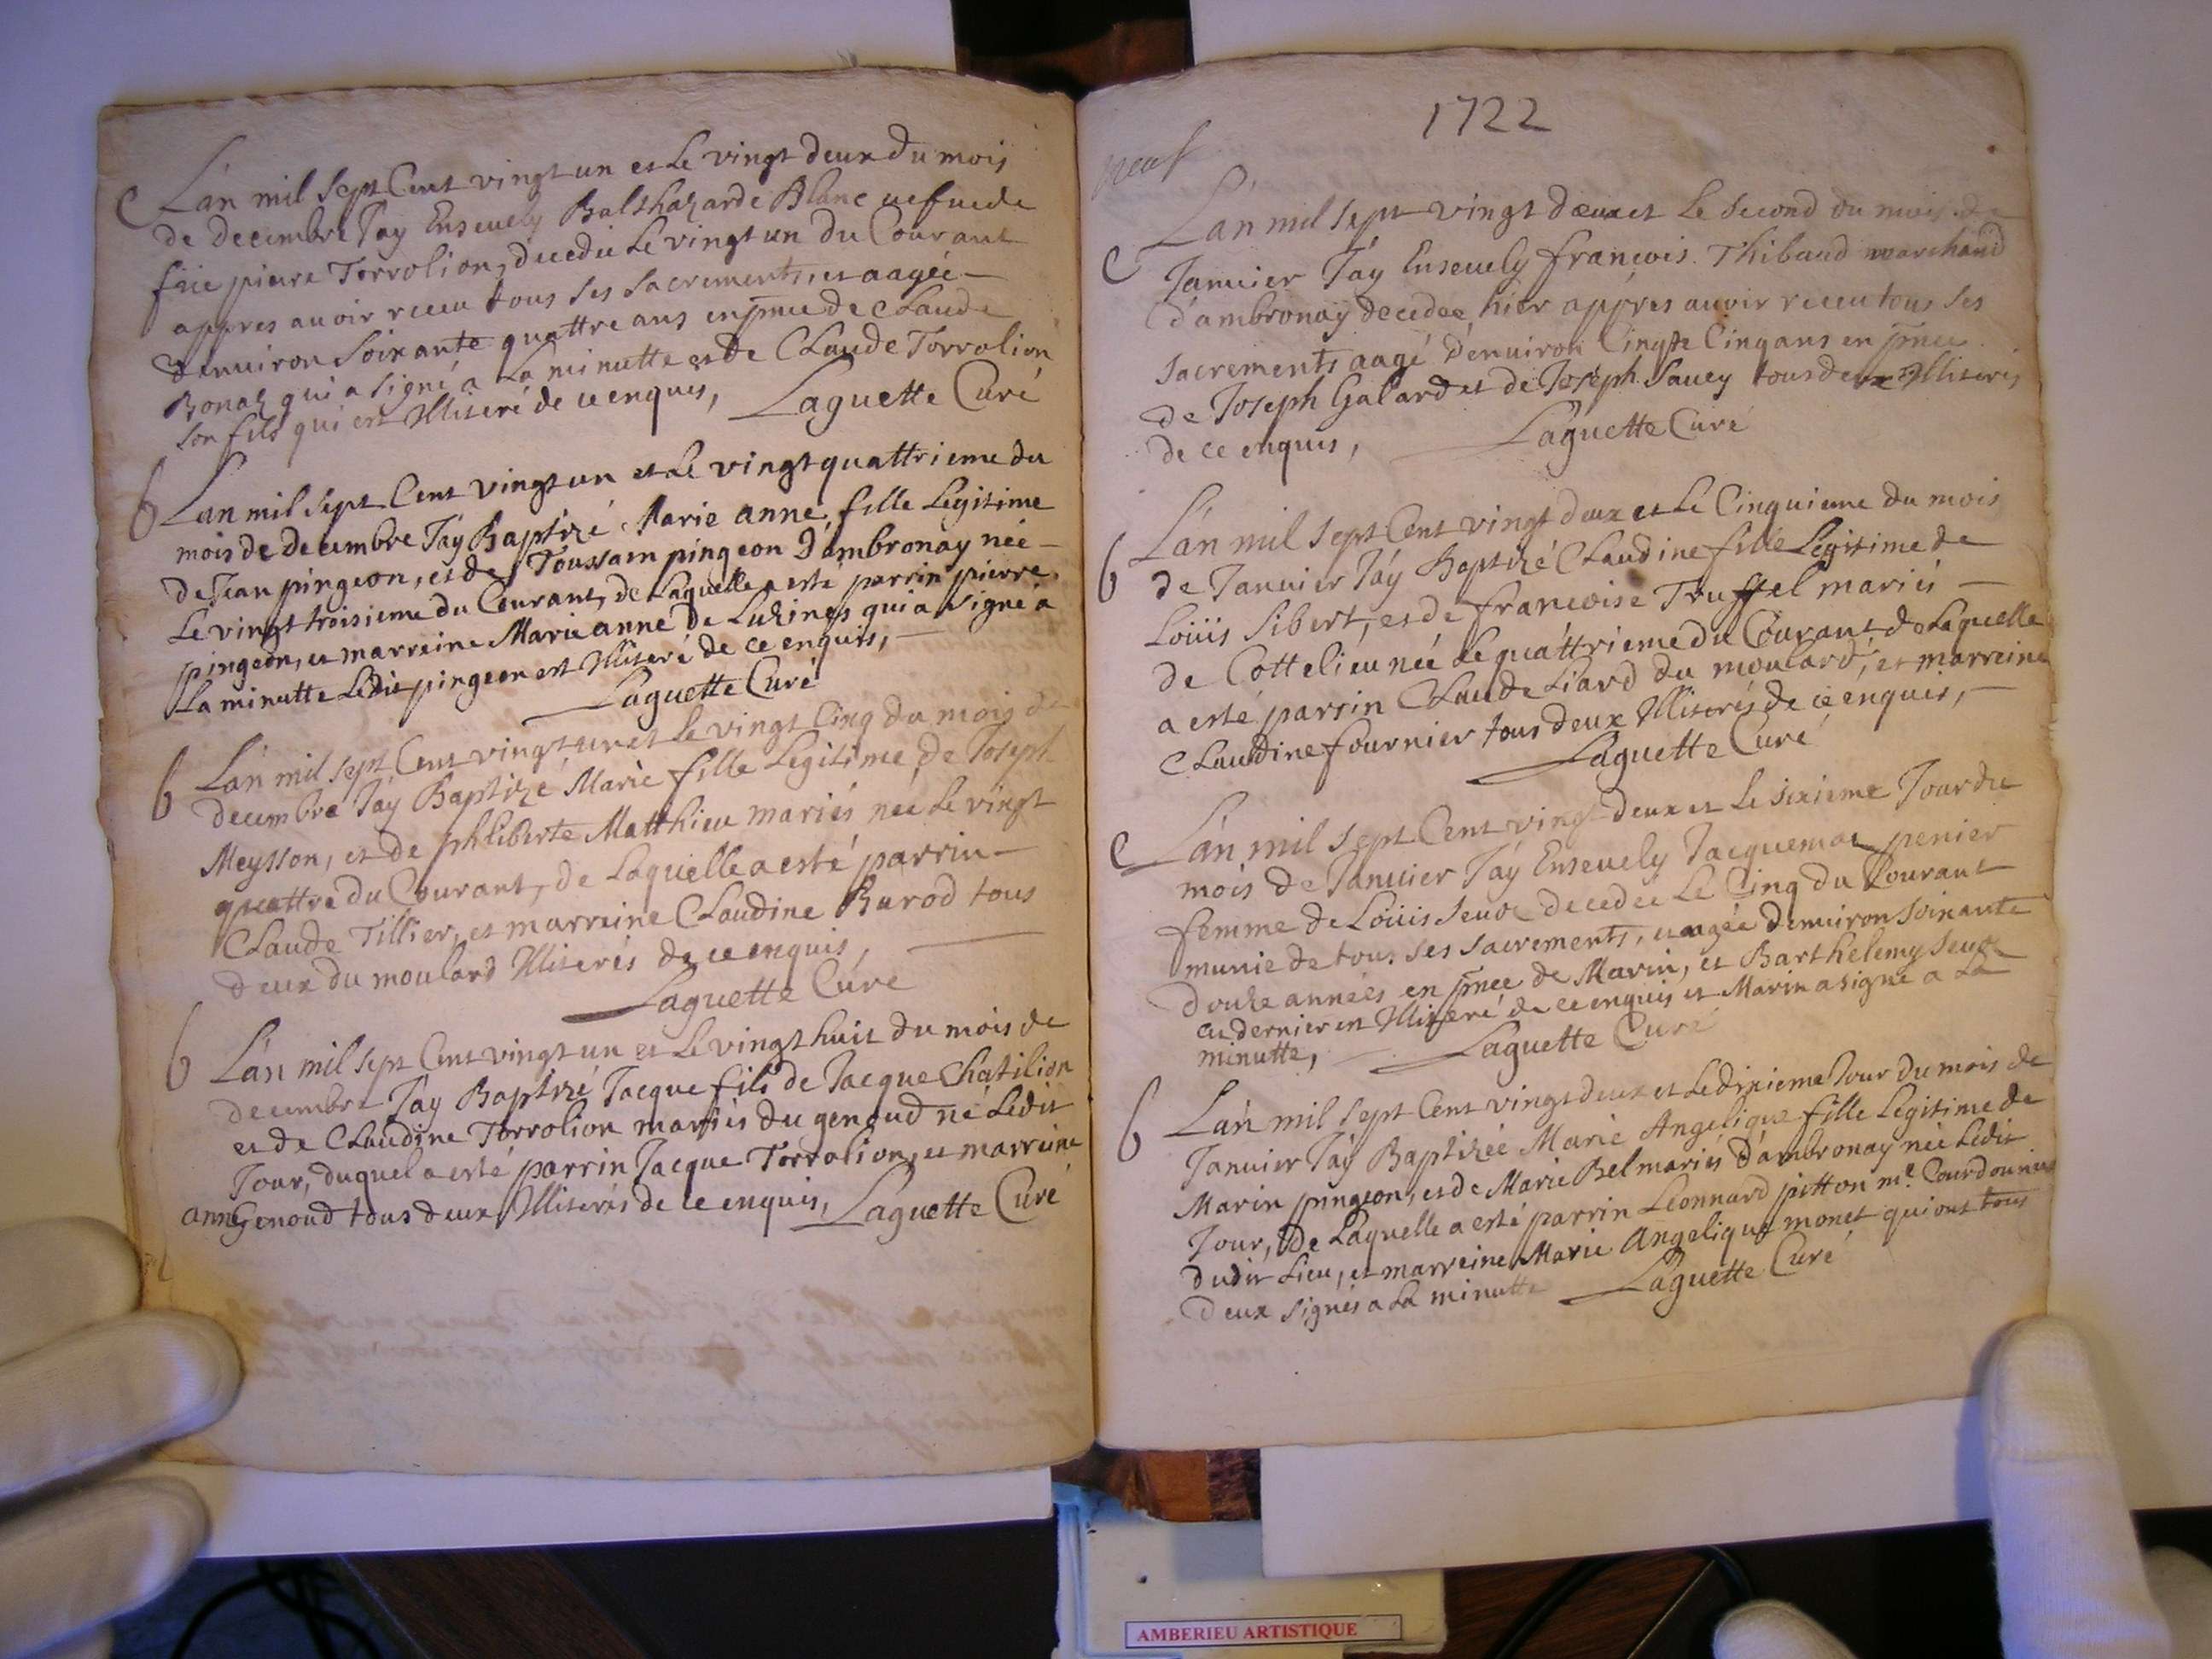 C Lán mil Sept Cent vingt un et Le vingt deux du mois
de decembre Jáy Ensevely Balthazarde Blanc vefue de
feü pierre Torrolion, decedée Le vingt un du Courant
appres auoir receu tous ses sacrements, et aagée —
d'enuiron Soixante quattre ans en pnce de Claude
Bonaz qui a signé a La minutte et de Claude Torrolion
son fils qui est Illiteré de ce enquis, Laguette Curé
b Lan mil Sept Cent vingt un et Le vingt quattrieme du
mois de decembre Jáy Baptizé Marie anne fille Legitime
de Jean pingeon, et de Toussain pingeon D'ambronay née —
Le vingt troisieme du Courant, de Laquelle a esté parrin pierre
pingeon, et marreine Marie anne De Luzines qui a signé a
La minutte Ledit pingeon est Illiteré de ce enquis, —
Laguette Curé
b Lán mil sept Cent vingt un et Le vingt Cinq du mois de
decembre Jáy Baptizé Marie fille Legitime de Joseph
Meysson, et de phliberte Matthieu mariés née Le vingt
quattre du Courant, de Laquelle a esté parrin —
Claude Tillier, et marreine Claudine Barod tous
deux du moulard Illiterés de ce enquis, —
Laguette Curé
b Lán mil Sept Cent vingt un et Le vingt huit du mois de
decembre Jáy Baptizé Jacque fils de Jacque Chatilion
et de Claudine Torrolion mariés du genoud né Ledit
Jour, duquel a esté parrin Jacque Torrolion, et marreine
anne Genoud tous deux Illiterés de ce enquis, Laguette Curé
1722
Lán mil Sept vingt deux et Le Second du mois de
C Januier Jáy Ensevely francois Thibaud marchand
d'ambronay decedee hier appres auoir receu tous ses
Sacrements aagé d'enuiron Cinqte Cinq ans en pnce
de Joseph Galard et de Joseph Saucy tous deux Illiterés
de ce enquis, Laguette Curé
Lán mil Sept Cent vingt deux et Le Cinquieme du mois
b de Januier Jáy Baptizé Claudine fille Legitime de
Loüis Sibert, et de francoise Truffel mariés —
de Cottelieu née Le quáttrieme du Courant de Laquelle
a esté parrin Claude Liard du moulard, et marreine
Claudine fournier tous deux Illiterés de ce enquis, —
Laguette Curé
C Lán mil Sept Cent vingt deux et Le sixieme Jour du
mois de Januier Jáy Ensevely Jacquemae penier
femme de Loüis Seuoz decedée Le Cinq du Courant
munie de tous ses sacrements, et aagée d'enuiron Soixante
douze années en pnce de Marin, et Barthelemy Seuoz
ce dernier est Illiteré de ce enquis et Marin a signé a La
minutte, — Laguette Curé
b Lán mil Sept Cent vingt deux et Le dixieme Jour du mois de
Januier Jáy Baptizée Marie Angelique fille Legitime de
Marin pingeon, et de Marie Bel mariés d'ambronay née Ledit
Jour, de Laquelle a esté parrin Léonnard pitton me Courdounier
dudit Lieu, et marreine Marie Angelique monet qui ont tous
deux signés a La minutte Laguette Curé
AMBERIEU ARTISTIQUE